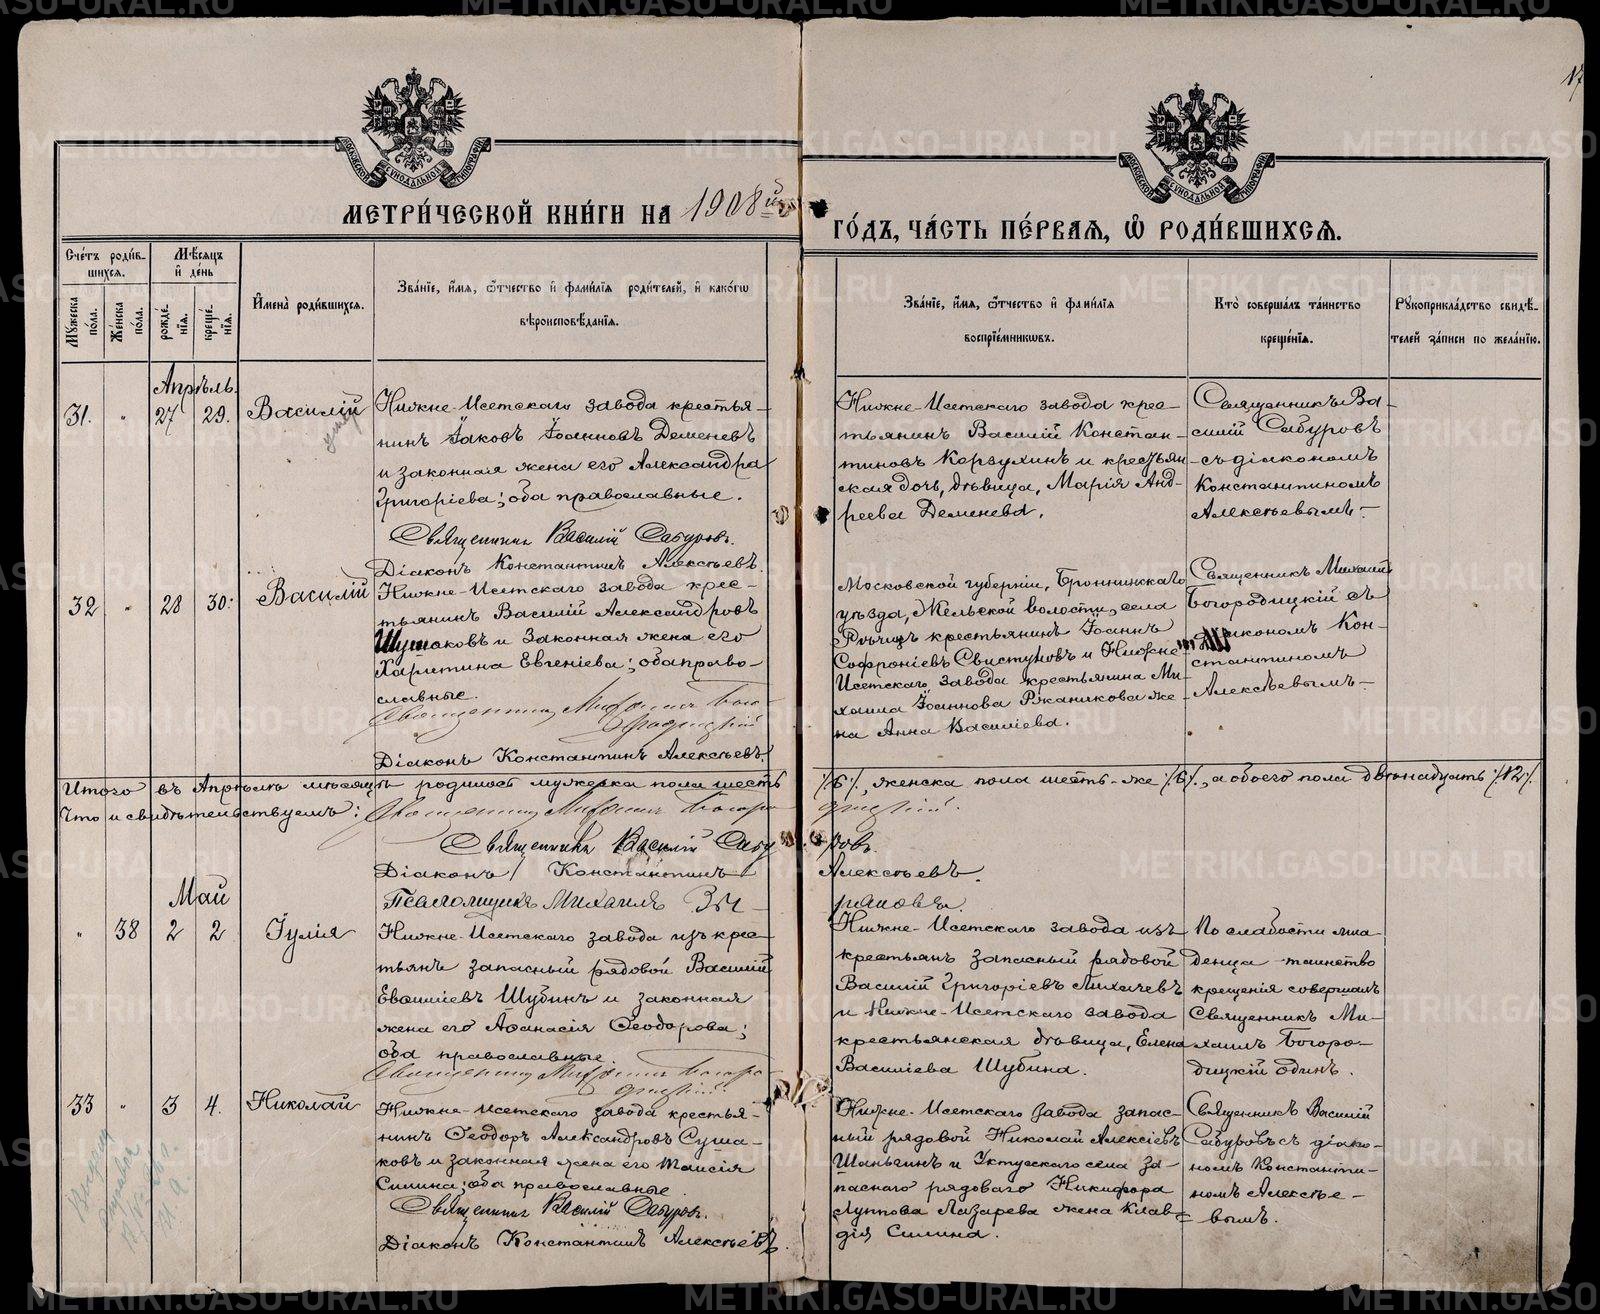 17
МЕТРИ́ЧЕСКОЙ КНИ́ГИ НА 1908й
ГО́ДЪ, ЧА́СТЬ ПЕ́РВАѦ, Ѡ҆ РОДИ́ВШИХСѦ.
Сче́тъ роди́в-
шихся.
Мѣ́сяцъ
и҆ де́нь
Мꙋжеска по́ла.
Же́нска по́ла.
рожде́-
нїя.
креще́-
нїя.
И҆мена̀ роди́вшихся.
Зва́нїе, и҆́мя, ѻ҆́тчество и҆ фами́лїя роди́телей, и҆ како́гѡ
вѣроисповѣ́данїя.
Зва́нїе, и҆́мя, ѻ҆́тчество и҆ фами́лїя
воспрїе́мникѡвъ.
Кто̀ соверша́лъ та́инство
креще́нїя.
Рꙋкоприкла́дство свидѣ́-
телей за́писи по жела́нїю.
Апрѣль.
31. " 27 29. Василій
умер
Нижне-Исетскаго завода крестья-
нинъ Іаковъ Іоанновъ Деменевъ
и законная жена его Александра
Григоріева; оба православные.
Священникъ Василій Сабуровъ.
Діаконъ Константинъ Алексѣевъ.
Нижне-Исетскаго завода крес-
тьянинъ Василій Констан-
тиновъ Корзухинъ и крестьян-
ская дочь, дѣвица, Марія Анд-
реева Деменева.
Священникъ Ва-
силій Сабуровъ
съ діакономъ
Константиномъ
Алексѣевымъ.-
32 " 28 30. Василій
Нижне-Исетскаго завода крес-
тьянинъ Василій Александровъ
Шушаковъ и законная жена его
Харитина Евгеніева; оба право-
славные.
Священникъ Михаилъ Бого-
родицкій
Діаконъ Константинъ Алексѣевъ.
Московской губерніи, Бронницкаго
уѣзда, Мельской волости, села
крестьянинъ Іоаннъ
Софроніевъ Свистуновъ и Нижне-
Исетскаго завода крестьянина Ми-
хаила Іоаннова Ржаникова же-
на Анна Василіева.
Священникъ Михаилъ
Богородицкій съ
діакономъ Кон-
стантиномъ
Алексѣевымъ.-
Итого въ Апрѣлѣ мѣсяцѣ родилось мужеска пола шесть /6/, женска пола шесть-же /6/, а обоего пола двѣнадцать /12/.
Что и свидѣтельствуемъ: Священникъ Михаилъ Богородицкій.
Священникъ Василій Сабуровъ.
Діаконъ Константинъ Алексѣевъ.
Псаломщикъ Михаилъ Зы-
ряновъ.
Май
" 38 2 2 Іулія
Нижне-Исетскаго завода изъ крес-
тьянъ запасный рядовой Василій
Евѳиміевъ Шубинъ и законная
жена его Аѳанасія Ѳеодорова;
оба православные.
Священникъ Михаилъ Богоро-
дицкій.
Нижне-Исетскаго завода изъ
крестьянъ запасный рядовой
Василій Григоріевъ Лихачевъ
и Нижне-Исетскаго завода
крестьянская дѣвица, Елена
Василіева Шубина.
По слабости мла-
денца таинство
крещенія совершалъ
Священникъ Ми-
хаилъ Богоро-
дицкій одинъ.
33 " 3 4. Николай
Нижне-Исетскаго завода крестья-
нинъ Ѳеодоръ Александровъ Суша-
ковъ и законная жена его Таисія
Силина; оба православные.
Священникъ Василій Сабуровъ.
Діаконъ Константинъ Алексѣевъ.
Нижне-Исетскаго завода запас-
ный рядовой Николай Алексіевъ
Шаньгинъ и Уктусскаго села за-
паснаго рядоваго Никифора
Луппова Лазарева жена Клав-
дія Силина.
Священникъ Василій
Сабуровъ съ діако-
номъ Константи-
номъ Алексѣе-
вымъ.